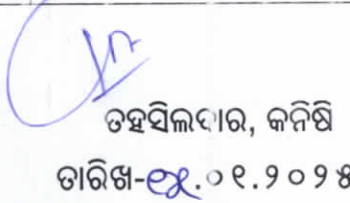 ତହସିଲଦାର, କନିଷି
ତାରିଖ-୧୪.୦୧.୨୦୨୫